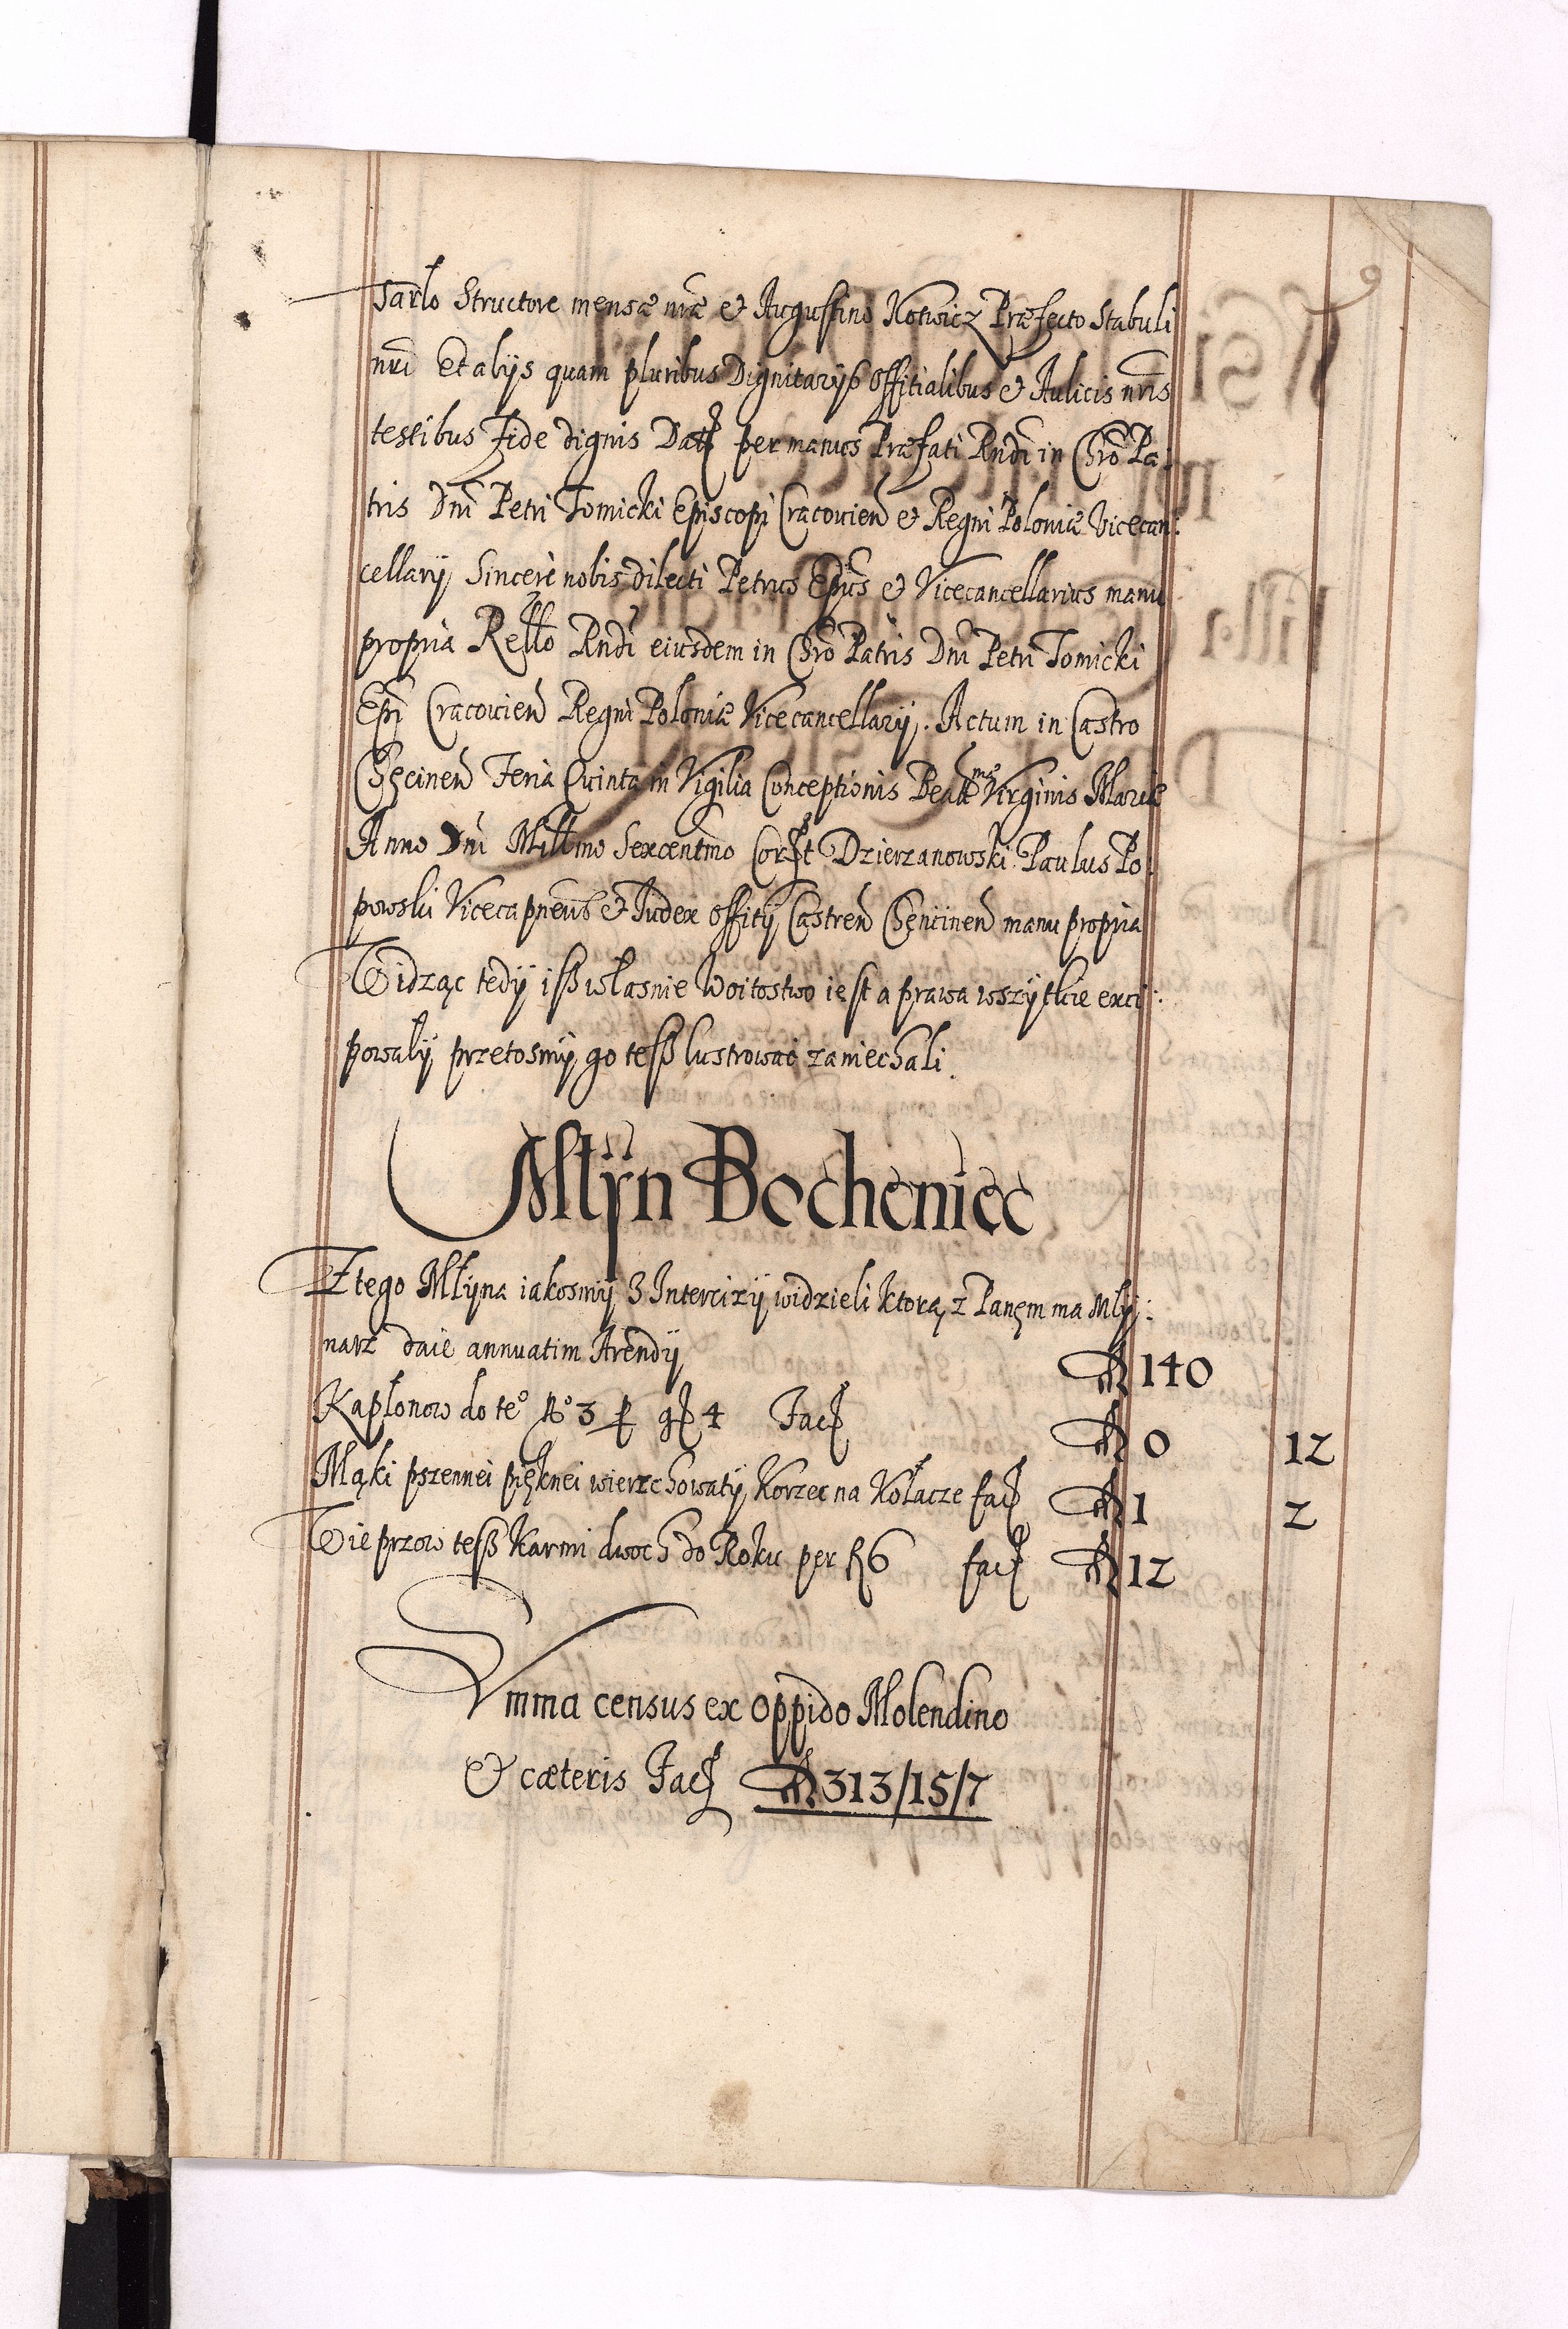 9
Tarło Structore mensæ nræ et Augustino Kotwicz Præfecto Stabuli
nri Et alijs quam pluribus Dignitarijs Offitialibus et Aulicis nris
testibus Fide dignis Dat per manus Præfati Rndi in Chro Pa:
tris Dni Petri Tomicki Episcopi Cracovien et Regni Poloniæ Vicecan:
cellarij Sincere nobis dilecti Petrus Epus et Vicecancellarius manu
propria Rello Rndi eiusdem in Chro Patris Dni Petri Tomicki
Epi Cracovien Regni Poloniæ Vicecancellarij. Actum in Castro
Chęcinen Feria Quinta in Vigilia Conceptionis Beatmæ Virginis Mariæ
Anno Dni Millmo Sexcentmo Dzierzanowski Paulus Po:
powski Vicecapneus et Iudex offitij Castren Chęncinen manu propria
Widząc tedÿ isß własnie Woitostwo iest a prawa wszÿtkie exci:
powalÿ przetosmÿ go tesß lustrować zaniechali.
Młÿn Bocheniec
Z tego Młÿna iakosmÿ z Intercizÿ widzieli ktorą z Panęm ma Młÿ:
narz daie annuatim Arendÿ fl 140
Kapłonow do te° N° 3 per g 4 Faci fl 0 12
Mąki pszennei pięknei wierzchowatÿ Korzec na Kołacze faci fl 1 2
Wieprzow tesß Karmi dwoch do Roku per fl 6 faci fl 12
Summa census ex oppido Molendino
et cæteris Faci fl 313/15/7